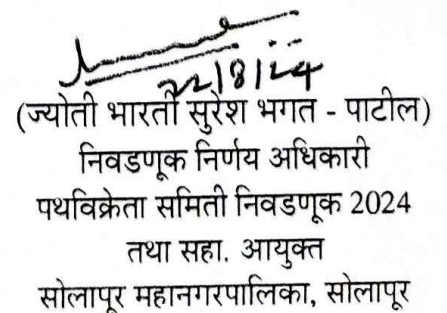 22/8/24
(ज्योती भारती सुरेश भगत - पाटील)
निवडणूक निर्णय अधिकारी
पथविक्रेता समिती निवडणूक 2024
तथा सहा. आयुक्त
सोलापूर महानगरपालिका, सोलापूर